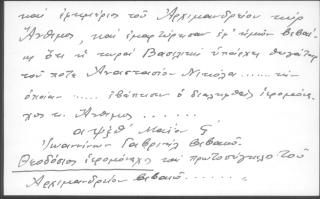 καὶ ἐφημέριος τοῦ Ἀρχιμανδρείου κὺρ
Ἄνθιμος, καὶ ἐμαρτύρησαν ἐφ' ἡμῶν
ὅτι ἡ κυρὰ Βασιλικὴ ὑπάρχει θυγάτηρ
τοῦ ποτὲ Ἀναστασίου ...... τὴν
ὁποίαν ...... ἐβάπτισεν ὁ διαληφθεὶς ἱερομόνα-
χος κ. Ἄνθιμος ......
αψξθ' Μαΐου
Ἰωαννίνων Γαβριὴλ βεβαιοῖ.
Θεοδόσιος ἱερομόναχος καὶ πρωτοσύγκελλος τοῦ
Ἀρχιμανδρείου βεβαιοῖ ......